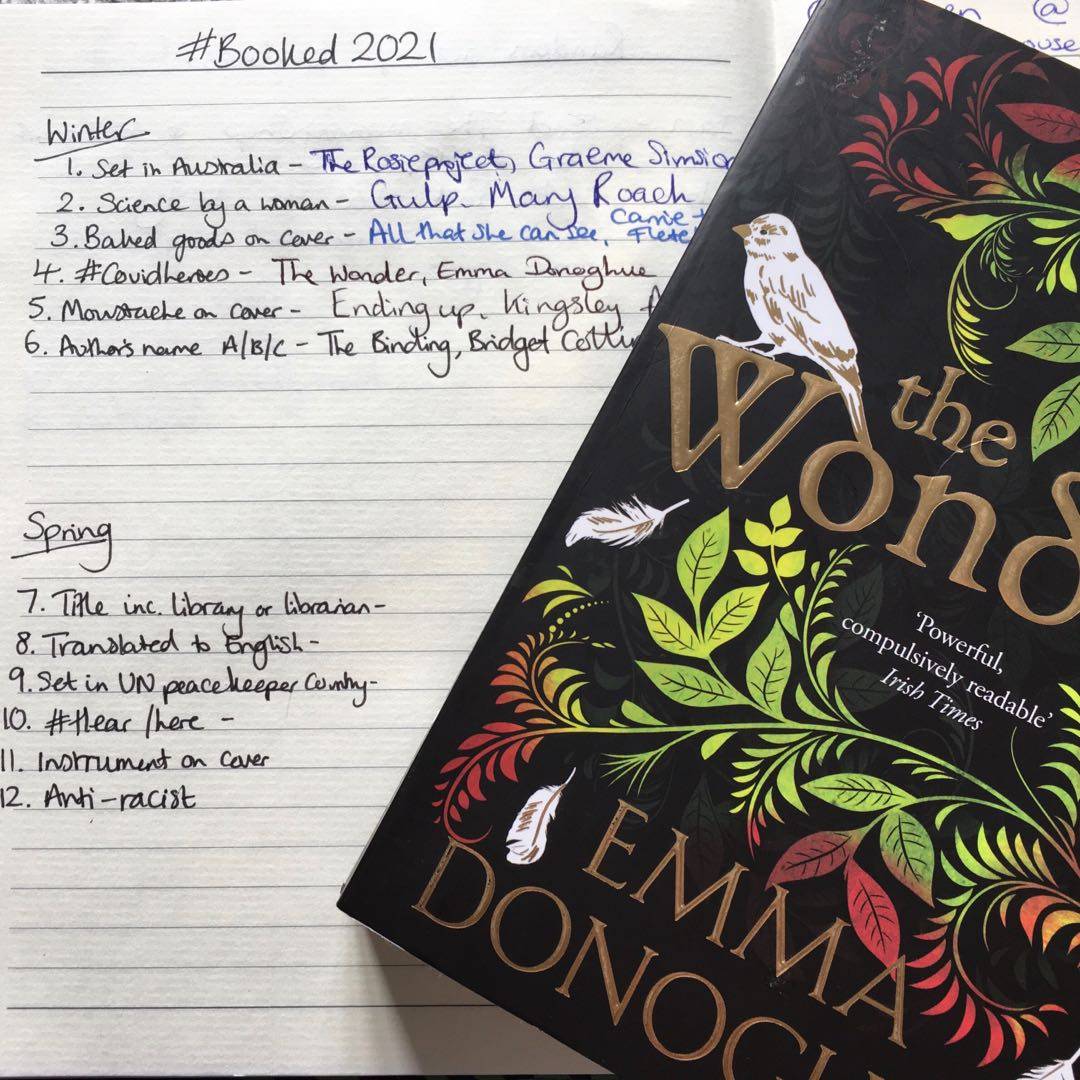 #Booked 2021
Winter
1. Set in Australia - The Rosie project, Graeme Simsion
2. Science by a woman - Gulp. Mary Roach
3. Baked goods on cover - All that she can see, Carrie
4. #Covidheroes - The Wonder, Emma Donoghue
5. Moustache on cover - Ending up. Kingsley
6. Author's name A/B/C - The Binding, Bridget
Spring
7. Title inc. library or librarian-
8. Translated to English-
9. Set in UN peacekeeper Country-
10. #Hear/here -
11. Instrument on cover
12. Anti-racist
@
the
Wond
'Powerful,
compulsively readable'
Irish Times
EMMA
DONOGH